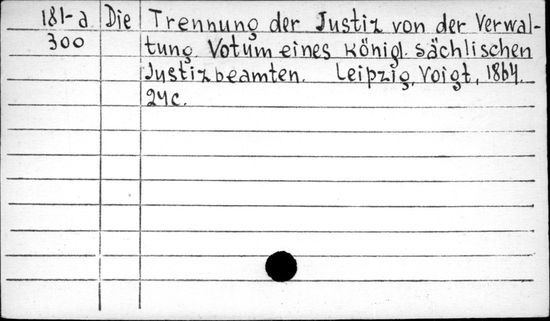 181-a Die Trennung der Justiz von der Verwal-
300 tung. Votum eines königl. sächlischen
Justizbeamten. Leipzig, Voigt, 1864.
24c.